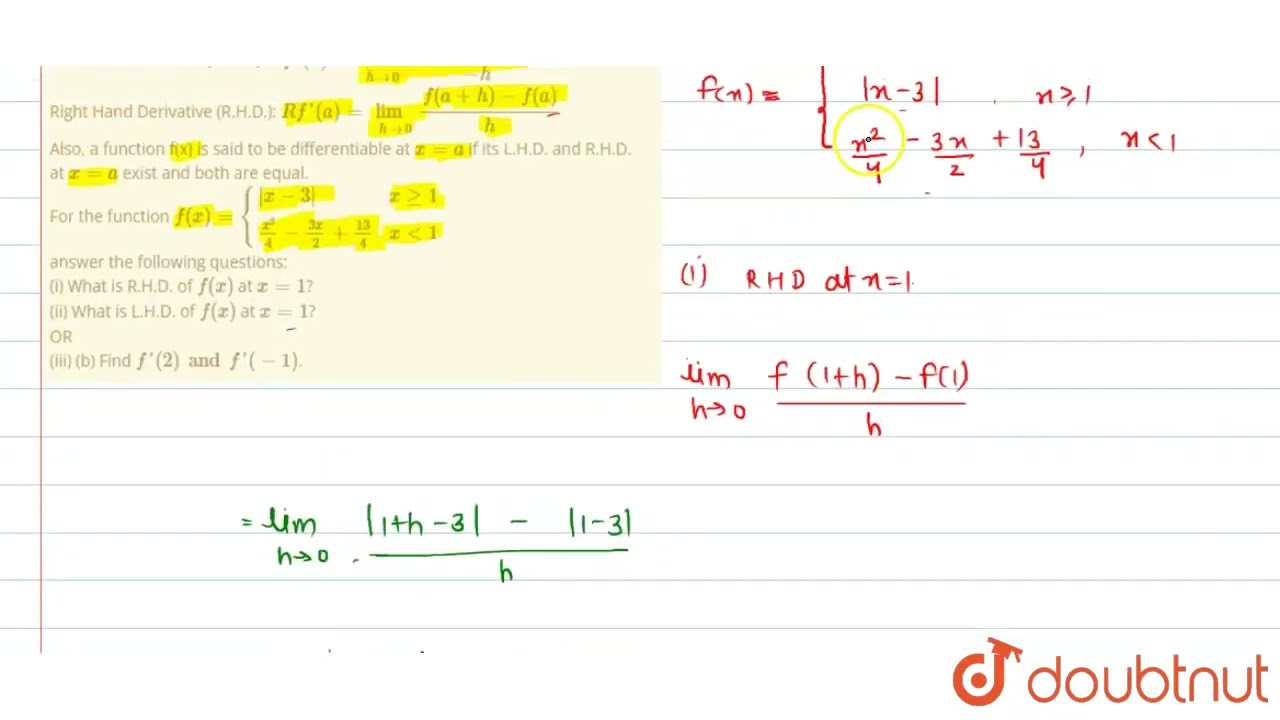 h→0 −h
Right Hand Derivative (R.H.D.): Rf'(a) = lim h→0 f(a + h) − f(a) / h
Also, a function f(x) is said to be differentiable at x = a if its L.H.D. and R.H.D.
at x = a exist and both are equal.
For the function f(x) = { |x − 3| x ≥ 1
x²/4 − 3x/2 + 13/4 x < 1
answer the following questions:
(i) What is R.H.D. of f(x) at x = 1?
(ii) What is L.H.D. of f(x) at x = 1?
OR
(iii) (b) Find f'(2) and f'(−1).
f(x) = { |x−3| , x ≥ 1
x²/4 − 3x/2 + 13/4 , x < 1
(i) RHD at x=1
lim h→0 f(1+h) − f(1) / h
= lim h→0 |1+h−3| − |1−3| / h
doubtnut